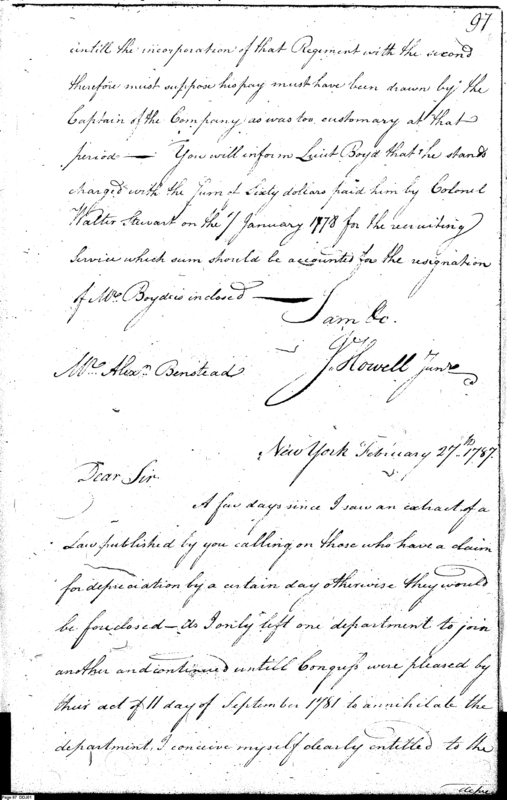 97
untill the incorporation of that Regiment with the second
therefore must suppose his pay must have been drawn by the
Captain of the Company, as was too customary at that
period — You will inform Lieut Boyd that he stands
charged with the Sum of Sixty dollars paid him by Colonel
Walter Stewart on the 1 January 1778 for the recruiting
Service which sum should be accounted for the resignation
of Mr Boyd is inclosed —
I am &c.
J. Howell Junr
Mr. Alexr. Benstead
New York February 27th. 1787.
Dear Sir
A few days since I saw an extract of a
Law published by you calling on those who have a claim
for depreciation by a certain day otherwise they would
be foreclosed — As I only left one department to join
another and continued untill Congress were pleased by
their act of 11 day of September 1781 to annihilate the
department, I conceive myself clearly entitled to the
depre